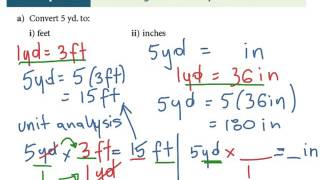 a) Convert 5 yd. to:
i) feet
ii) inches
1yd = 3ft
5yd = 5(3ft)
= 15ft
unit analysis
5yd/1 × 3ft/1yd = 15 ft
5yd = in
1yd = 36in
5yd = 5(36in)
= 180 in
5yd × /1 = _in